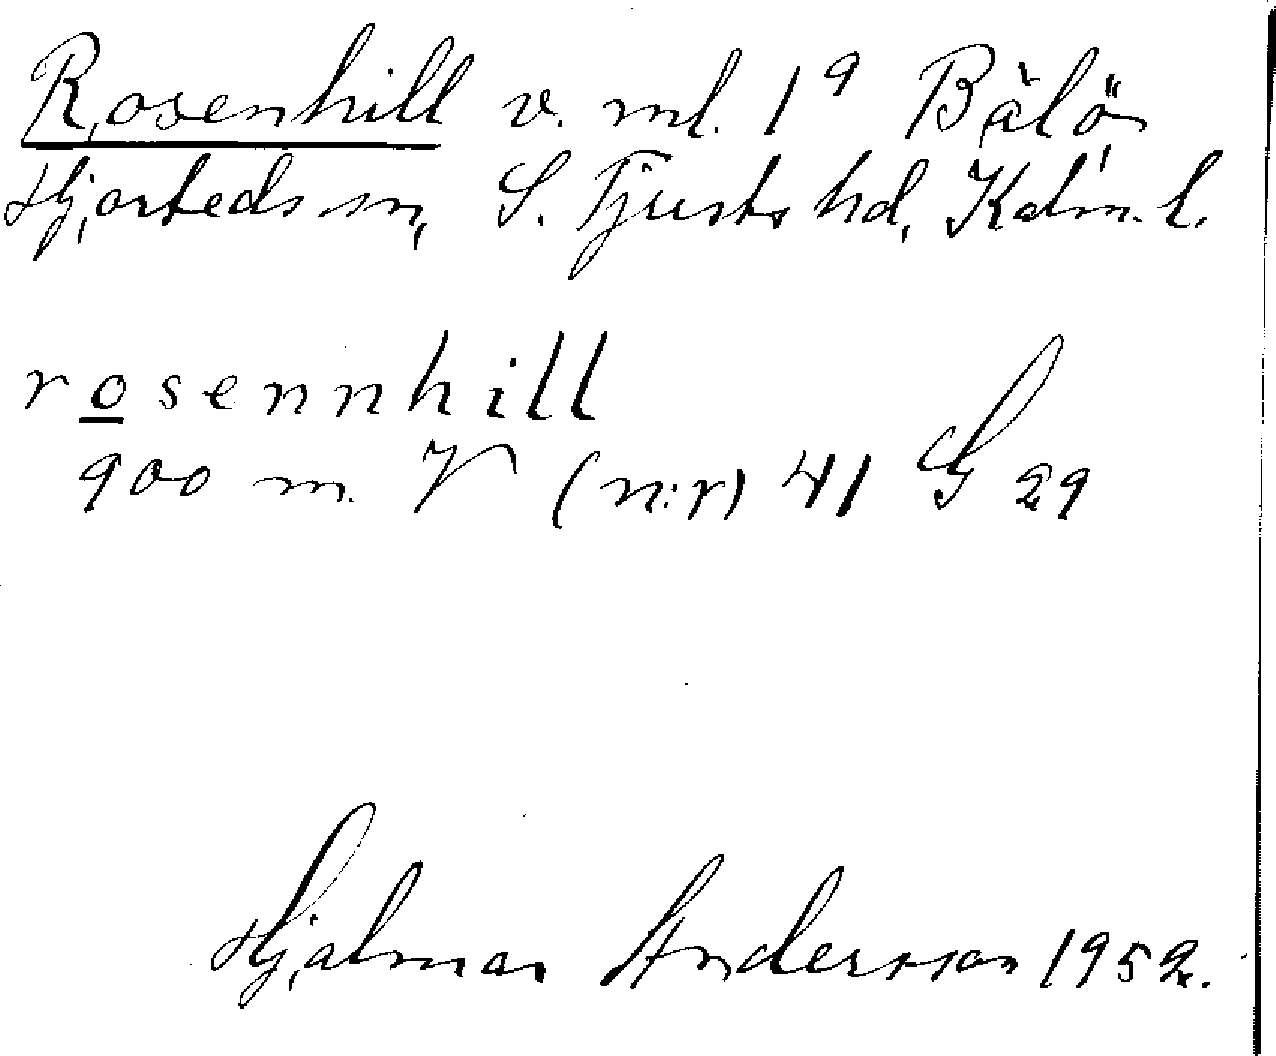 Rosenhill v. ml. 1⁹ Bälö
Hjorteds sn, S. Tjusts hd, Kalm. l.
rosennhill
900 m. V (n:r) 41 G 29
Hjalmar Andersson 1952.